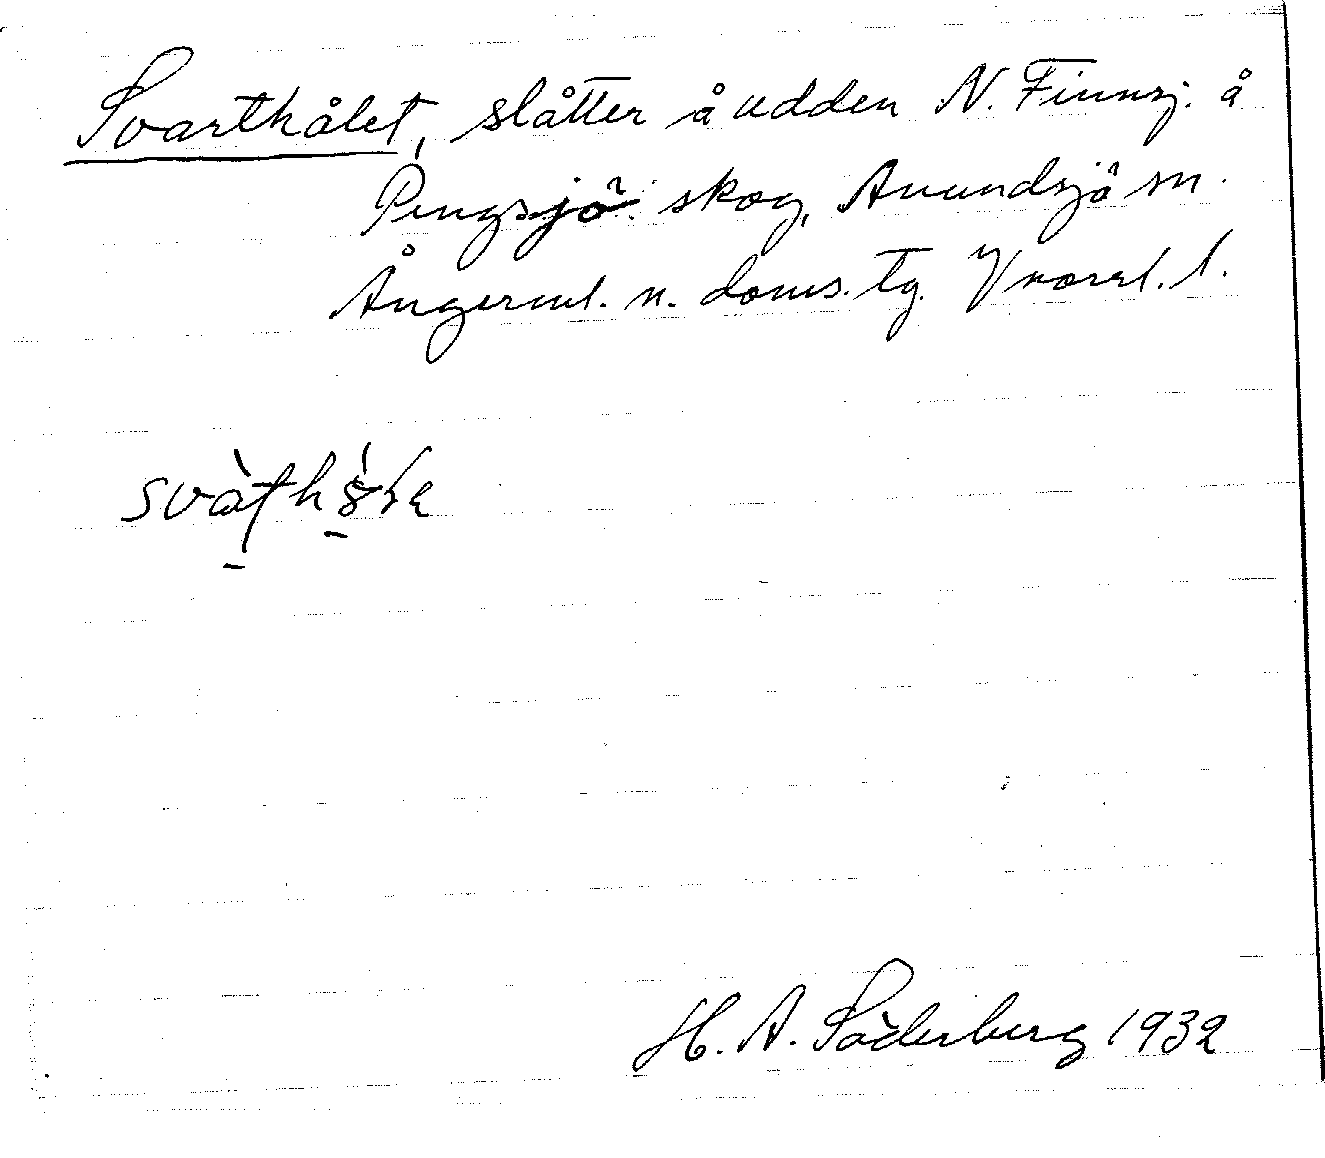 Svarthålet, slåtter å udden N. Finnsj. å
Pengsjö skog, Anundsjö sn.
Ångerml. n. doms. tg. Vnorrl. l.
H. A. Söderberg 1932